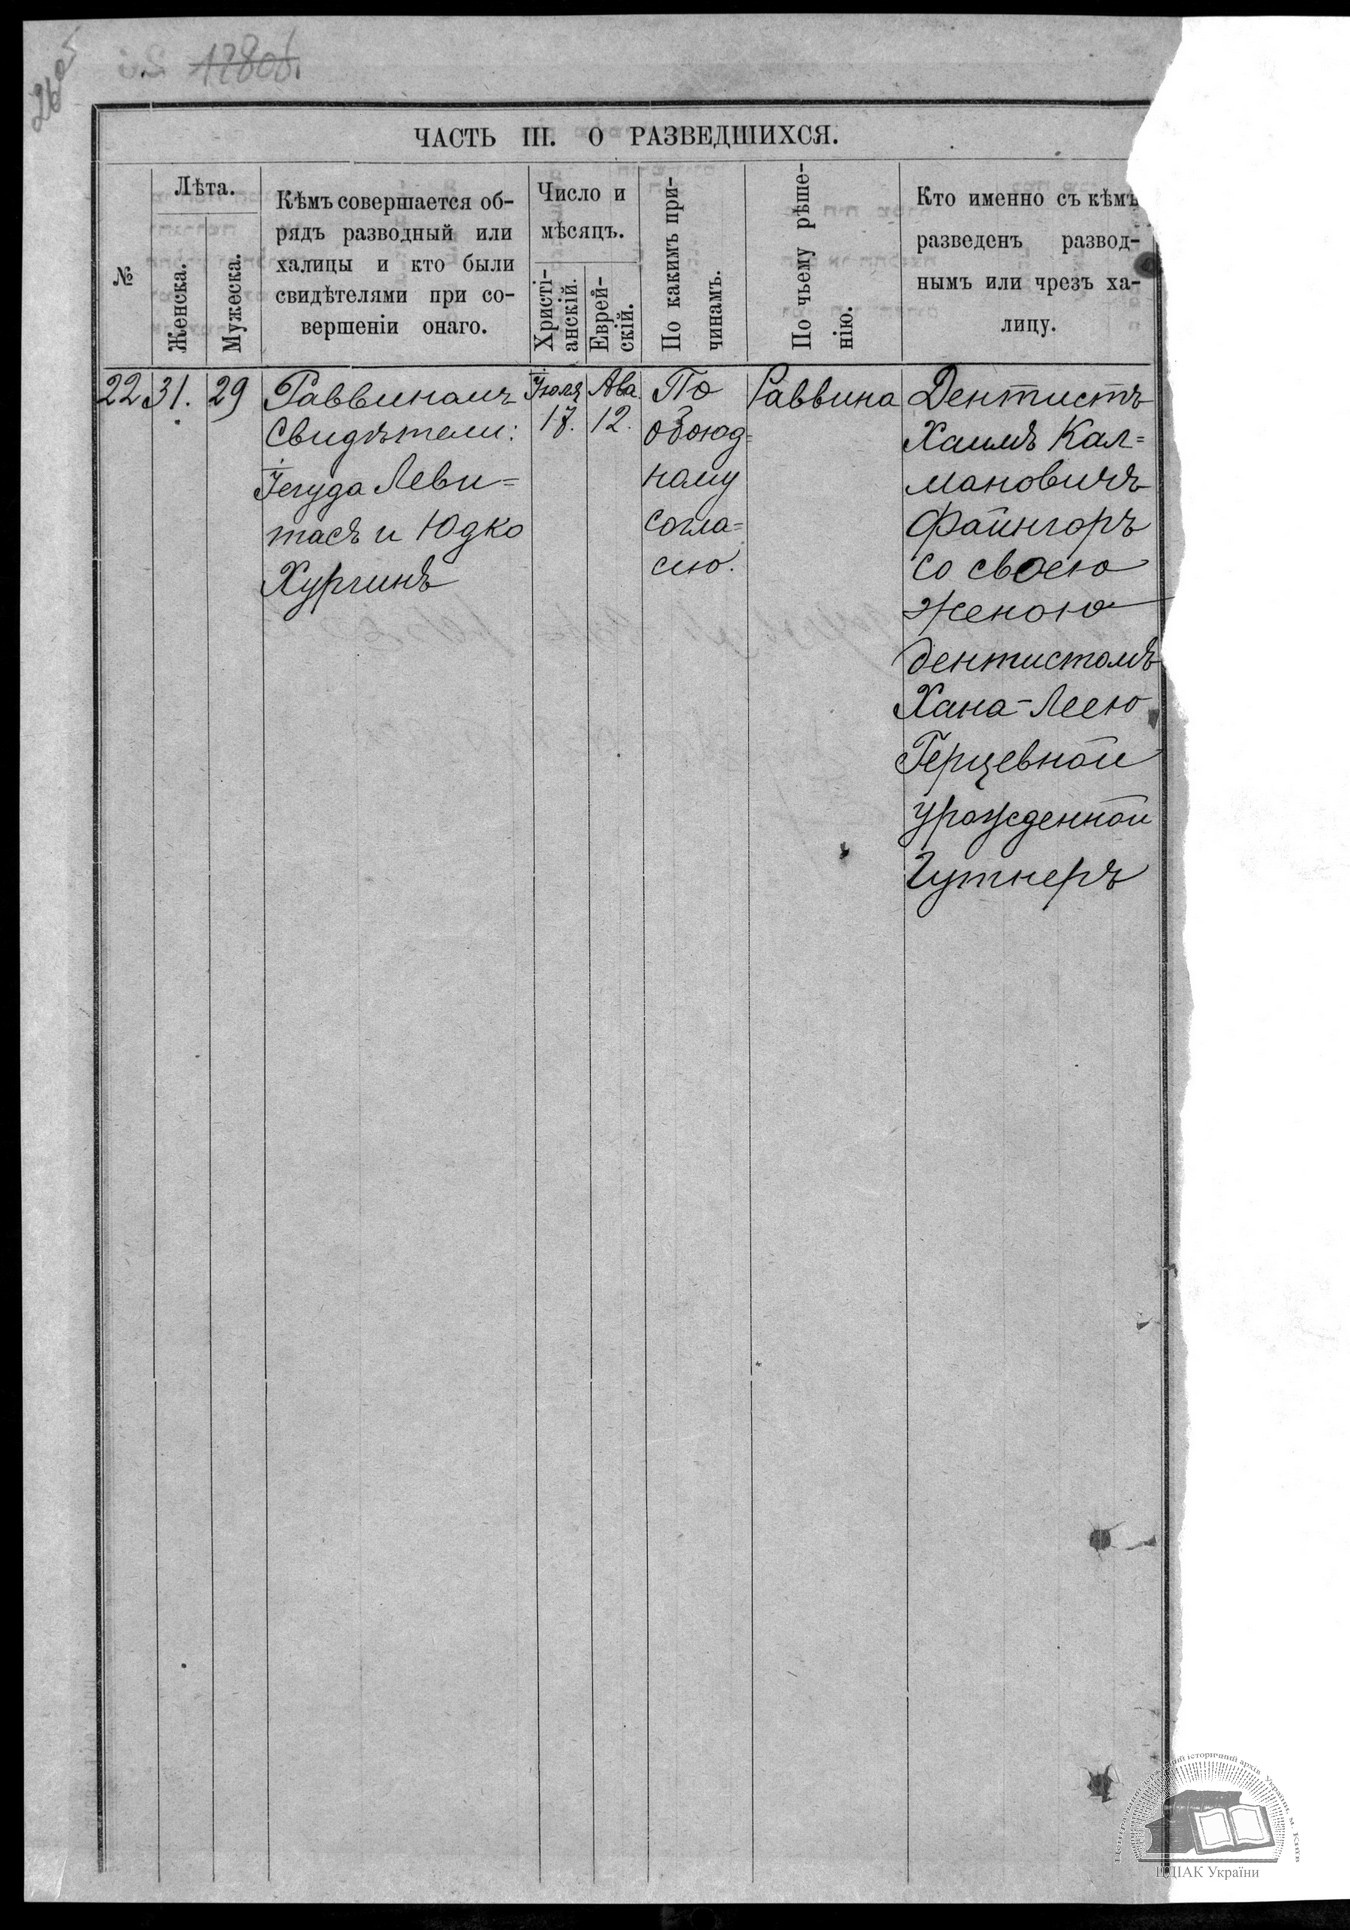 1280б.
ЧАСТЬ III. О РАЗВЕДШИХСЯ.
№
Лѣта.
Женска.
Мужеска.
Кѣмъ совершается об-
рядъ разводный или
халицы и кто были
свидѣтелями при со-
вершеніи онаго.
Число и
мѣсяцъ.
Христі-
анскій.
Еврей-
скій.
По какимъ при-
чинамъ.
По чьему рѣше-
нію.
Кто именно съ кѣмъ
разведенъ развод-
нымъ или чрезъ ха-
лицу.
22
31.
29
Раввиномъ
Свидѣтели:
Іегуда Леви=
тасъ и Юдко
Хургинъ
Іюля
17.
Ава
12.
По
обоюд=
ному
согла=
сію.
Раввина
Дентистъ
Хаимъ Кал=
мановичъ
Файнгоръ
со своею
женою
дентистомъ
Хана-Леею
Герцевной
урожденной
Гутнеръ
ЦДІАК України